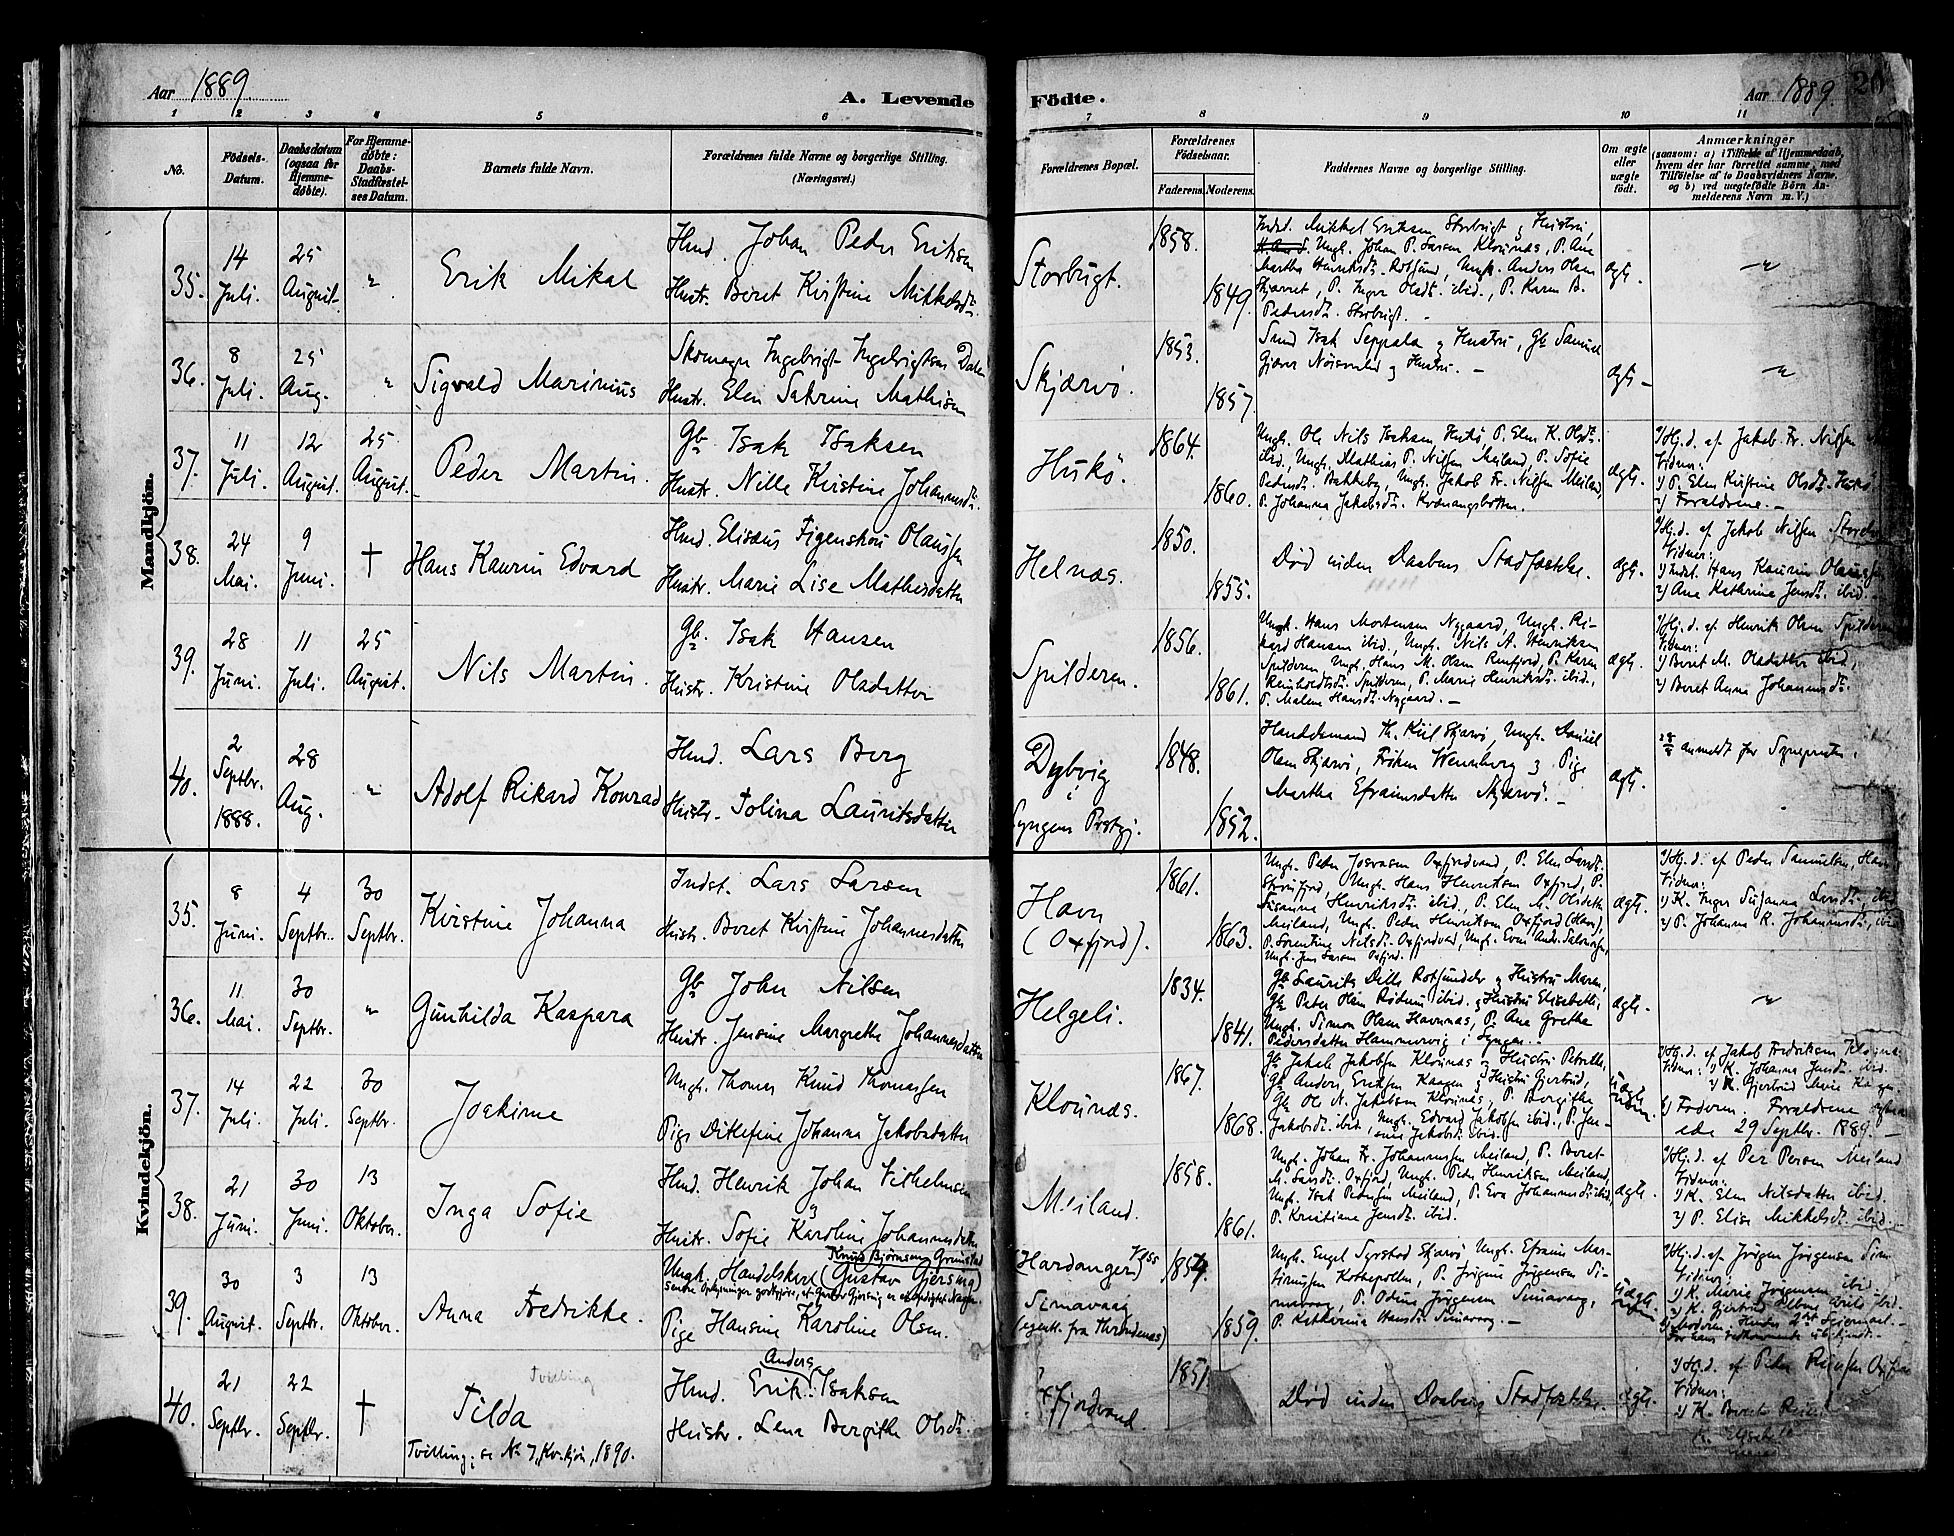 Aar 1889
A. Levende
Födte.
Aar 1889.
20
1 2 3 4 5 6 7 8 9 10 11
No.
Födsels-
Datum.
Daabsdatum
(ogsaa for
Hjemme-
døbte).
For Hjemme-
døbte:
Daabs-
Stadfæstel-
ses Datum.
Barnets fulde Navn.
Forældrenes fulde Navne og borgerlige Stilling.
(Næringsvei.)
Forældrenes Bopæl.
Forældrenes
Födselsaar.
Faderens. Moderens.
Faddernes Navne og borgerlige Stilling.
Om ægte
eller
uægte
födt.
Anmærkninger
(saasom: a) i Tilfælde af Hjemmedaab,
hvem der har forrettet samme, med
Tilföielse af to Daabsvidners Navne,
og b) ved uægtefödte Börn An-
melderens Navn m. V.)
Mandkjön.
35.
14
Juli.
25
August.
"
Erik Mikal
Hmd. Johan Peder Eriksen
Hustr. Beret Kirstine Mikkelsdtr.
Storbugt.
1858.
1849.
Indst. Mikkel Eriksen Storbugt & Hustru,
Ungk. Johan P. Larsen Klounas, P. Ane
Martha Henriksdtr. Rotsund, Ungk. Anders Olsen
Skjærvø, P. Inger Olsdtr. ibid., P. Karen B.
Pedersdtr. Storbugt. -
ægt.
"
36.
8
Juli.
25
Aug.
"
Sigvald Marinius
Skomager Ingebrigt Ingebrigtsen Dalen
Hustr. Elen Sakrine Mathisen
Skjærvø.
1853.
1857.
Smed Isak Seppala & Hustru, Gb. Samuel
Gjæver & Hustru. -
ægt. -
"
37.
11
Juli.
12
August.
25
August.
Peder Martin.
Gb. Isak Isaksen
Hustr. Nille Kirstine Johannesdtr.
Hukø.
1864.
1860.
Ungk. Ole Nils Isaksen Hukø, P. Elen K. Olsdtr.
ibid., Ungk. Mathias P. Nilsen Meiland, P. Sofie
Pedersdtr. Bakkeby, Ungk. Jakob Fr. Nilsen Meiland,
P. Johanna Jakobsdtr. Kvænangsbotten.
ægt.
1/ Hj.d. af Jakob Fr. Nilsen
Vidner:
1) P. Elen Kirstine Olsdtr. Hukø
2) Forældrene. -
38.
24
Mai.
9
Juni.
†
Hans Kaurin Edvard
Hmd. Elisæus Figenskou Olaussen
Hustr. Marie Lise Mathisdatter
Helnæs.
1850.
1855.
Død inden Daabens Stadfæstelse.
ægt.
1/ Hj.d. af Jakob Nilsen
Vidner:
1) Indst. Hans Kaurin Olaussen
2) Ane Kathrine Jensdtr. ibid.
39.
28
Juni.
11
Juli.
25
August.
Nils Martin.
Gb. Isak Hansen
Hustr. Kristine Olsdatter
Spilderen.
1856.
1861.
Ungk. Hans Mortensen Nygaard, Ungk. Ri-
kard Hansen ibid., Ungk. Nils A. Henriksen
Spilderen, Ungk. Hans M. Olsen Reinfjord, P. Karen
Reinholdtsdtr. Spilderen, P. Marie Henriksdtr. ibid.,
P. Malene Hansdtr. Nygaard. -
ægt.
1/ Hj.d. af Henrik Olsen Spilderen
Vidner:
1) Beret M. Olsdatter ibid,
2) Beret Anne Johannesdtr.
40.
2
Septbr.
1888.
28
Aug.
"
Adolf Rikard Konrad
Hmd. Lars Berg
Hustr. Tolina Lauritsdatter
Dybvig
Lyngens Prstgj.
1848.
1852.
Handelsmand Th. Kiil Skjærvø, Ungk. Daniel
Olsen Skjærvø, Frøken Wennberg & Pige
Martha Efraimsdatter Skjærvø. -
ægt.
anmeldt for Sognepresten.
Kvindekjön.
35.
8
Juni.
4
Septbr.
30
Septbr.
Kirstine Johanna
Indst. Lars Larsen
Hustr. Beret Kirstine Johannesdatter
Havn
(Oxfjord).
1861.
1863.
Ungk. Peder Oxfjordvand, P. Elen Larsdtr.
Storfjord, Ungk. Hans Henriksen Oxfjord, P.
Susanne Henriksdtr. ibid., P. Elen M. Olsdatter
Meiland, Ungk. Peder Henriksen Oxfjord (Havn),
P. Lorentine Nilsdtr. Oxfjordvand, Ungk. Even Andr. Salomonsen,
Ungk. Jens Larsen Oxfjord.
ægt.
1/ Hj.d. af Peder Samuelsen, Havn
Vidner:
1) K. Inger Susanna Larsdtr. ibid
2) P. Johanna K. Johannesdtr., ibid
36.
11
Mai.
30
Septbr.
"
Gunhilda Kaspara
Gb. John Nilsen
Hustr. Jensine Margrethe Johannesdatter
Helgeli.
1834.
1841.
Gb. Laurits Dille Rotsundelv & Hustru Maren,
Gb. Peter Hein ibid. & Hustru Elisabeth,
Ungk. Simon Olsen Havnnæs, P. Ane Grethe
Pedersdatter Hammervig i Lyngen. -
ægt.
"
37.
14
Juli.
22
Juli.
30
Septbr.
Joakime
Ungk. Thomas Knud Thomassen
Pige Ditlefine Johanna Jakobsdatter
Klounæs.
1867.
1868.
Gb. Jakob Jakobsen Klounæs & Hustru Petrikke,
Gb. Anders Eriksen Kaagen & Hustru Gjertrud,
Gb. Ole N. Jakobsen Klounæs, P. Bergithe
Jakobsdtr. ibid, Ungk. Edvard Jakobsen ibid., P. Jen-
sine Jakobsdtr. ibid.
uægt.
1/ Hj.d. af Jakob Fredriksen
Vidner: 1) K. Johanna Jensdtr. ibid.
2) K. Gjertrud Marie Kaagen
b) Faderen. Forældrene
ede 29 Septbr. 1889. -
38.
21
Juni.
30
Juni.
13
Oktober.
Inga Sofie
Hmd. Henrik Johan Vilhelmsen
&
Hustr. Sofie Karoline Johannesdatter
Meiland.
1858.
1861.
Ungk. Johan Fr. Johannessen Meiland, P. Beret
M. Larsdtr. Oxfjord, Ungk. Peder Henriksen Meiland,
Ungk. Isak Pedersen Meiland, P. Eva Johannesdtr. ibid,
P. Kristiane Jensdtr. ibid.
ægt.
1/ Hj.d. af Per Persen Meiland
Vidner:
1) K. Elen Nilsdatter ibid.
2) P. Elise Mikkelsdtr. ibid. -
39.
30
August.
3
Septbr.
13
Oktober.
Anna Fredrikke.
Knud Bjørnsen Grimstad
Ungk. Handelskar (Gustav Gjersing)
Senere Oplysninger godtgjøre, at Gustav Gjersing er Navn.
Pige Hansine Karoline Olsen.
(Hardanger)
Simavaag
(egentl. fra Throndenæs)
1857.
1859.
Ungk. Engel Syrstad Skjærvø, Ungk. Efraim Mar-
tinusen Kobbepollen, P. Jørgine Jørgensen Si-
mavaag, P. Odine Jørgensen Simavaag,
P. Katharina Hansdtr. Simavaag. -
uægt.
1/ Hj.d. af Jørgen Jørgensen Sim
Vidner:
1) K. Marie Jørgensen ibid.
2) K. Gjertrud ibid.
b) Moderen. Hendes 2det Leiermaal. -
For hans Vedkommende ubekjendt. -
40.
21
Septbr.
22
Septbr.
†
Tvilling
Tilda
Tvilling; se No 7, Kv.kjøn, 1890.
Anders
Hmd. Erik Isaksen
Hustr. Lena Bergithe Olsdtr.
Oxfjordvand
1851.
Død inden Daabens Stadfæstelse.
ægt.
1/ Hj.d. af Peder
Vidner:
1) K. Beret